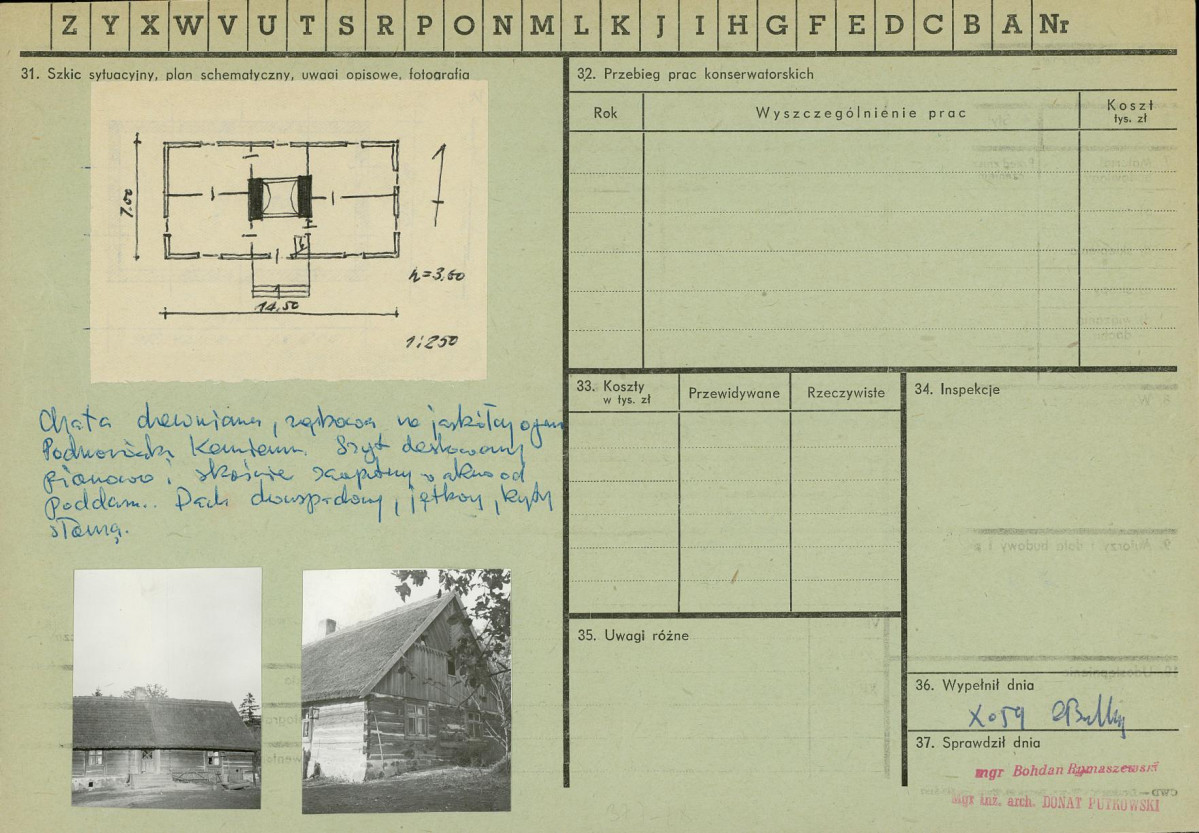 Z Y X W V U T S R P O N M L K J I H G F E D C B A Nr
31. Szkic sytuacyjny, plan schematyczny, uwagi opisowe, fotografia
7.00
h=3,60
14,50
1:250
Chata drewniana, zrębowa na jaskółczy ogon
Podmurówka Kamienna. Szyt deskowany
pionowo i skośnie
poddasz.. Dach dwuspadowy, jętkowy, kryty
słomą.
32. Przebieg prac konserwatorskich
Rok
Wyszczególnienie prac
Koszt
tys. zł
33. Koszty
w tys. zł
Przewidywane
Rzeczywiste
34. Inspekcje
35. Uwagi różne
36. Wypełnił dnia
X 059
37. Sprawdził dnia
mgr Bohdan Rymaszewski
mgr inż. arch. DONAT PUTKOWSKI